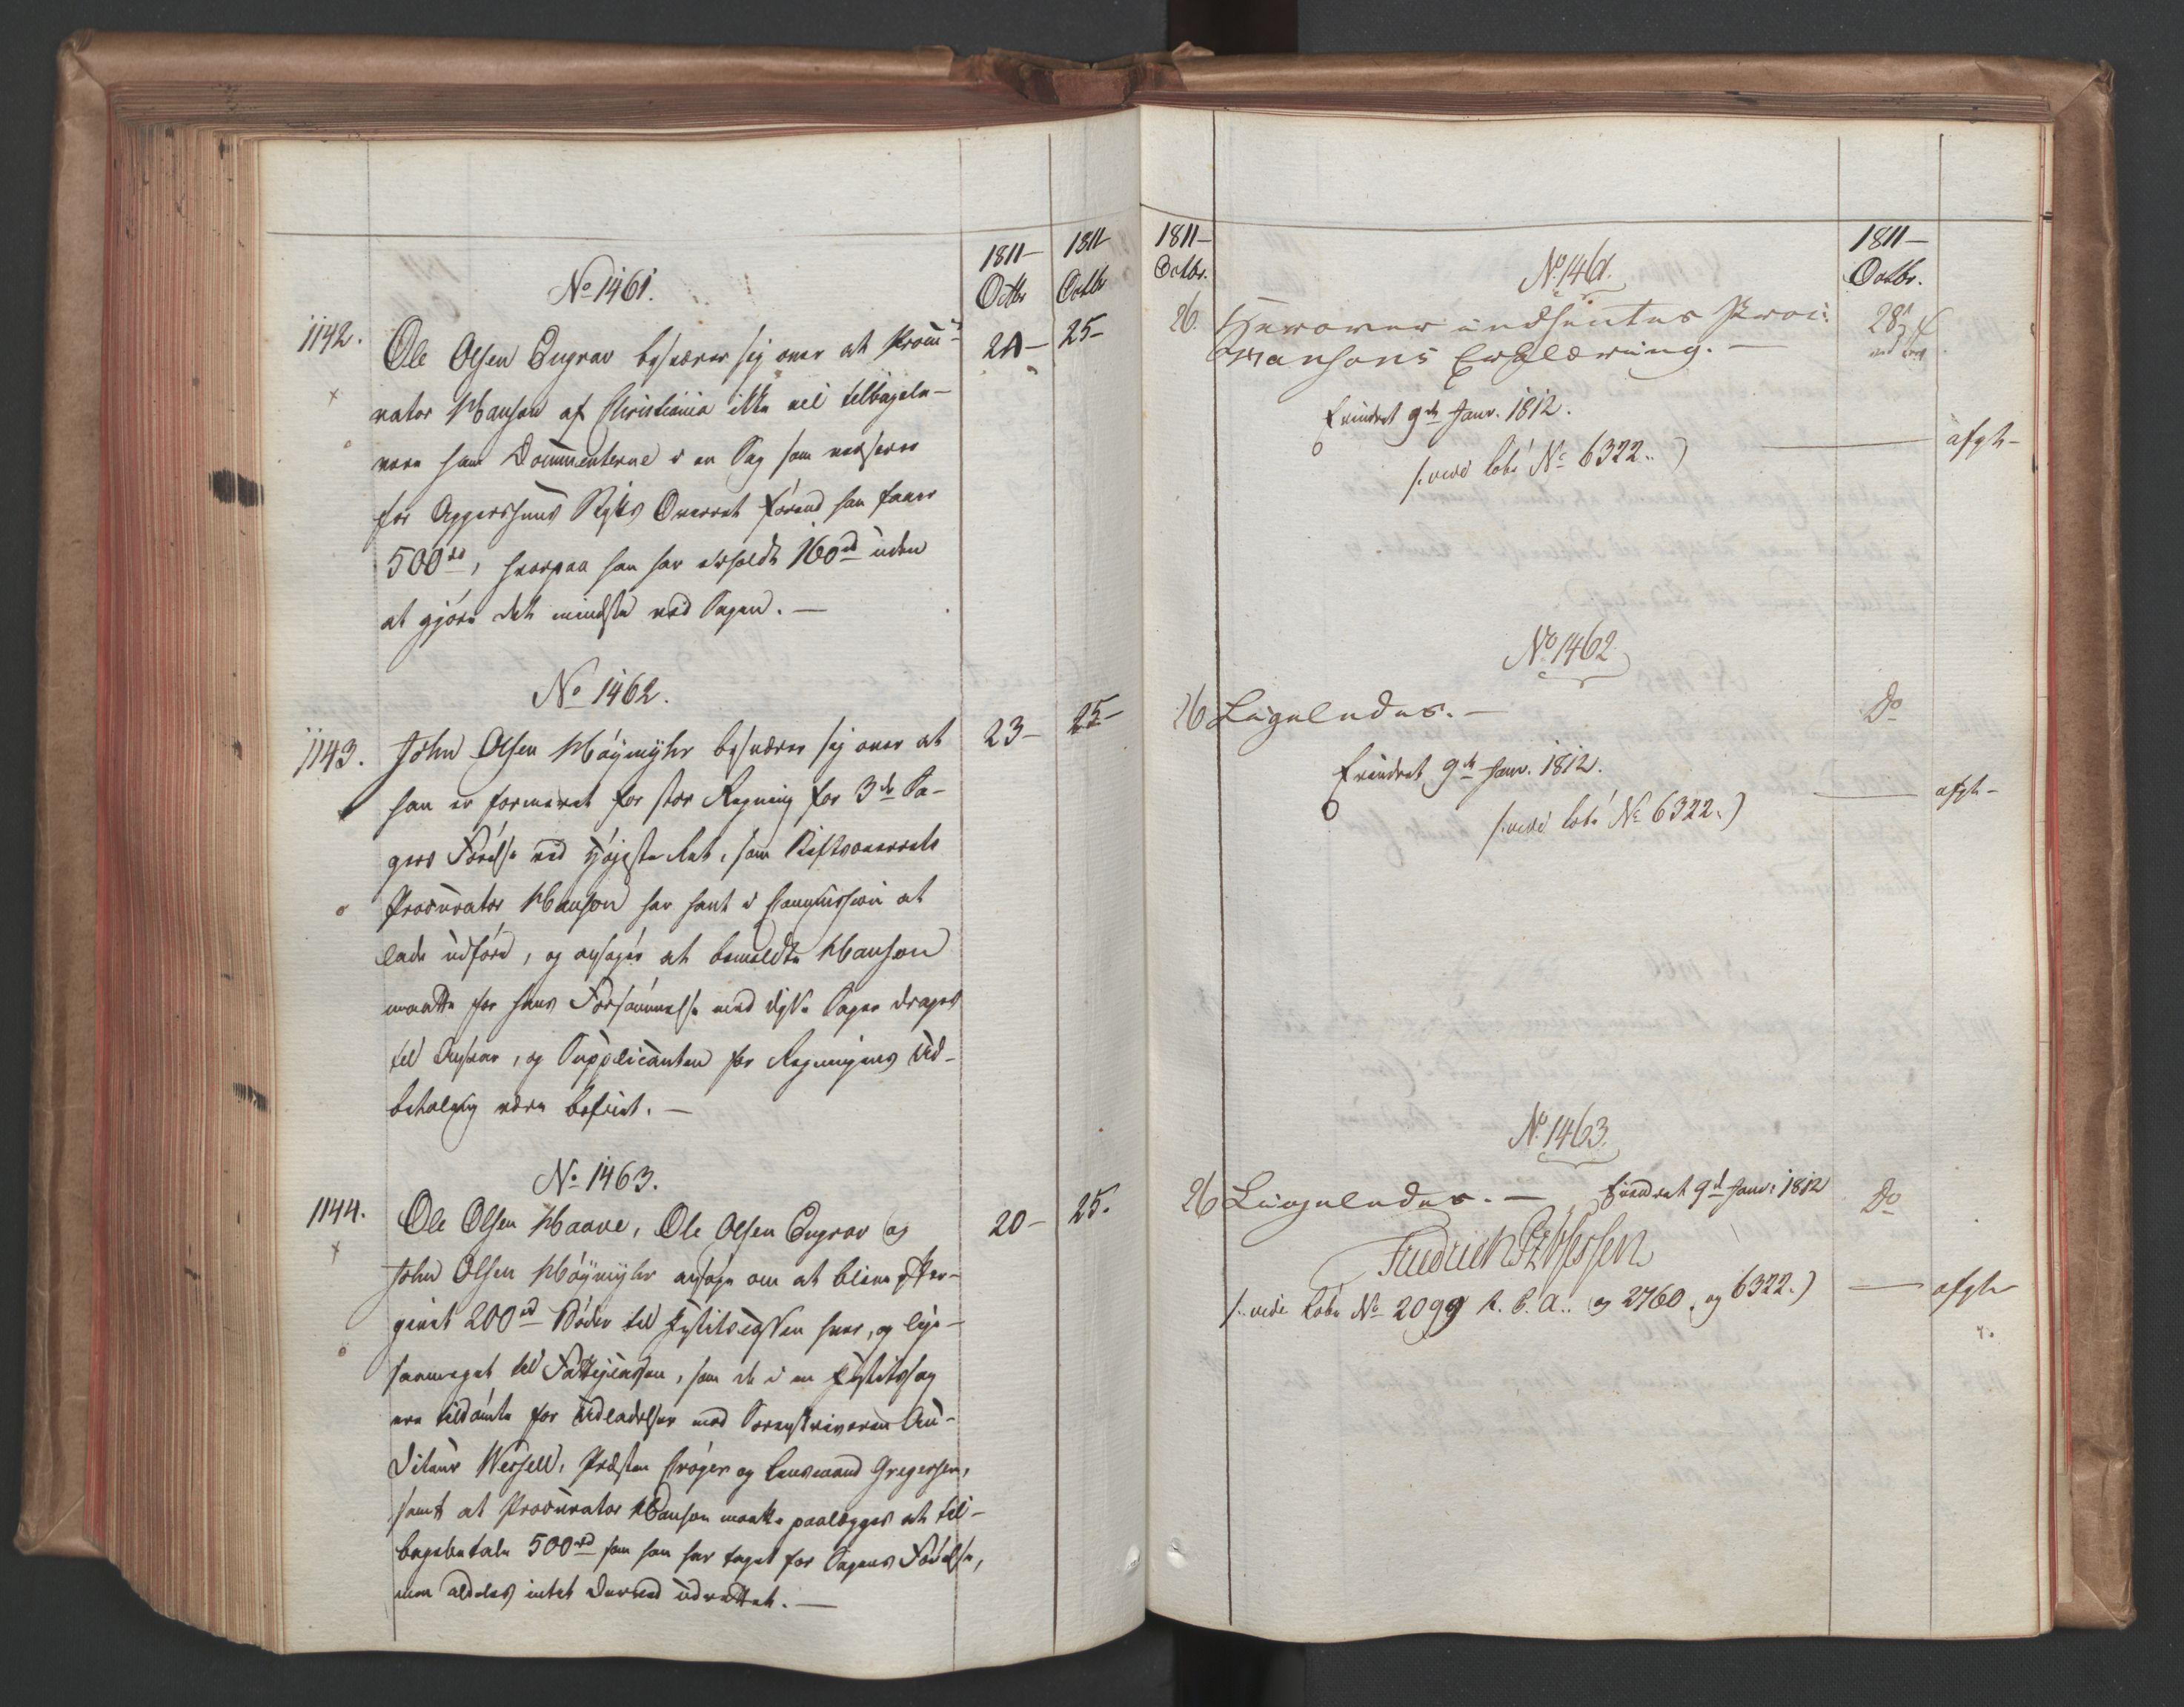 1811-
Octbr
1811
Octbr
No 1461.
1142.
Ole Olsen Engrav besværer sig over at Procu-
24-
25-
rator Hansen af Christiania ikke vil tilbagele-
vere ham Documenterne i en Sag som verserer
for Aggershuus Stifts Overret förend han faaer
500 rd, hvorpaa han har erholdt 160 rd uden
at gjöre det mindste ved Sagen. -
No 1462.
1143.
John Olsen Höÿmÿhr besværer sig over at
23-
25-
han er formeent for stor Regning for 3de Sa-
gers Förelse ved Höjeste Ret, som Stiftsoverrets
Procurator Hanson har havt i Commission at
lade udföre, og ansöger at bemeldte Hanson
maatte for hans Forsömmelse med disse Sager drages
til Ansvar, og Supplicanten for Regningens Ud-
betaling være befriet. -
No 1463.
1144.
Ole Olsen Haave, Ole Olsen Engrav og
20-
25.
John Olsen Höÿmÿhr ansöge om at blive efter-
givet 200 rd Böder til Justitscassen hver, og lige-
saameget til Fattigcassen, som de i en Justitssag
ere tildömte for Udladelser mod Sorenskriveren Au-
diteur Wessell, Præsten Cröger og Lensmand Gregersen,
samt at Procurator Hanson maatte paalægges at til-
bagebetale 500 rd som han har taget for Sagens Förelse,
men aldeles intet derved udrettet. -
1811-
Octbr.
1811-
Octbr.
No 1461.
26.
Herover indhentes Proc:
28
Hansons Erklæring. -
Erindret 9de Janr. 1812.
(: vide Lobe No 6322. :)
afgh-
No 1462
26 Ligeledes. -
Do
Erindret 9de Janr. 1812.
(: vide Lobe No 6322. :)
afgh-
No 1463.
26 Ligeledes. - Erindret 9de Janr: 1812
Do
(: vide Lobe No 2099 A. C. A.. og 2760, og 6322. :)
afgh